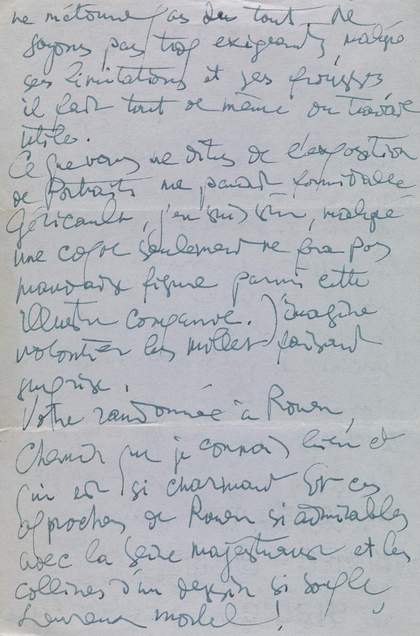 ne m'étonne pas du tout. Ne
soyons pas trop exigeants, malgré
ses limitations et ses
il fait tout de même du travail
utile.
Ce que vous me dites de l'exposition
de Portraits me paraît formidable
Géricault, j'en suis sûr, malgré
une copie seulement ne fera pas
mauvaise figure parmi cette
illustre compagnie. J'imagine
volontiers les Millet faisant
surprise.
Votre randonnée à Rouen,
Chemin que je connais bien et
qui est si charmant Et ces
approches de Rouen si admirables
avec la Seine majestueuse et les
collines d'un dessin si souple,
heureux mortel !